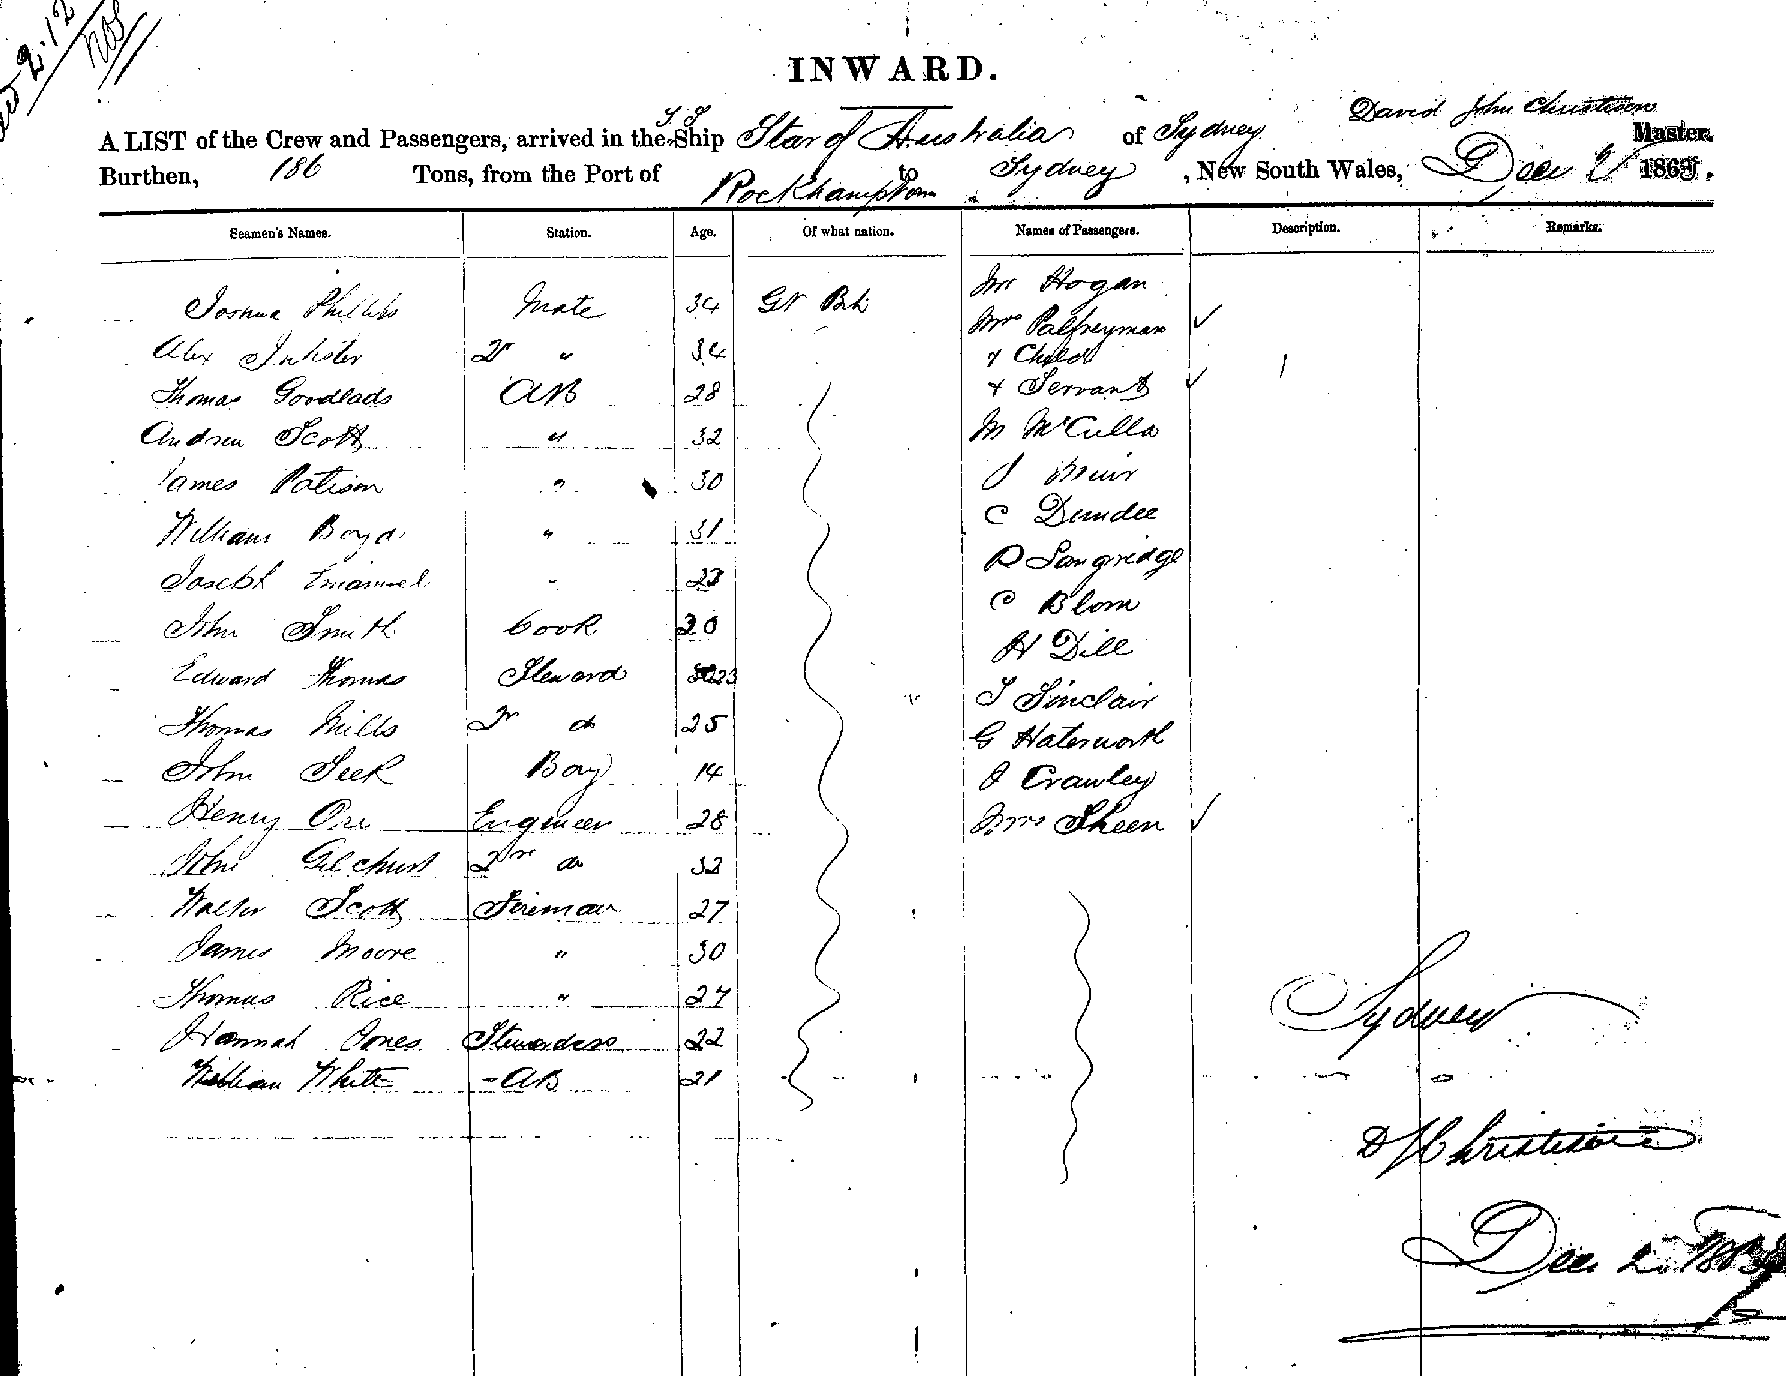 2.12
INWARD.
David John Christison
A LIST of the Crew and Passengers, arrived in the S.S. Ship Star of Australia of Sydney Master.
Burthen, 186 Tons, from the Port of Rockhampton to Sydney, New South Wales, Decr 2 186
Seamen's Names. Station. Age. Of what nation. Names of Passengers. Description. Remarks.
Joshua Phillips Mate 34 Gt Bn Mr Hogan
Mrs Palfreyman ✓
Alex Inkster 2r " 34 & Child 1
Thomas Goodlads AB 28 & Servant ✓
Andrew Scott " 32 M McCulla
James Patison " 30 J Muir
William Boyd " 31 C Dundee
Joseph Emanuel " 23 D Langridge
John Smith Cook 20 C Blom
Edward Thomas Steward 23 H Dill
Thomas Mills 2r do 25 J Sinclair
John Seek Boy 14 G Haterworth
J Crawley
Henry Orr Engineer 28 Mrs Sheen ✓
John Gilchrist 2nr do 32
Walter Scott Fireman 27
James Moore " 30
Thomas Rice " 27
Hannah Jones Stewardess 22
William White - AB 21
Sydney
D J Christison
Dec 2